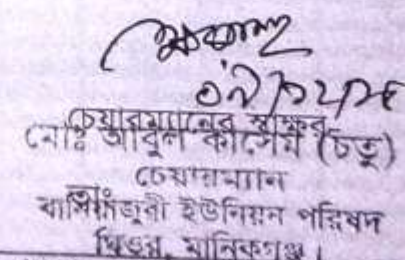 চেয়ারম্যানের স্বাক্ষর
মোঃ আবুল কাসেম (চতু)
চেয়ারম্যান
তাং
বানিয়াজুরী ইউনিয়ন পরিষদ
ঘিওর, মানিকগঞ্জ।